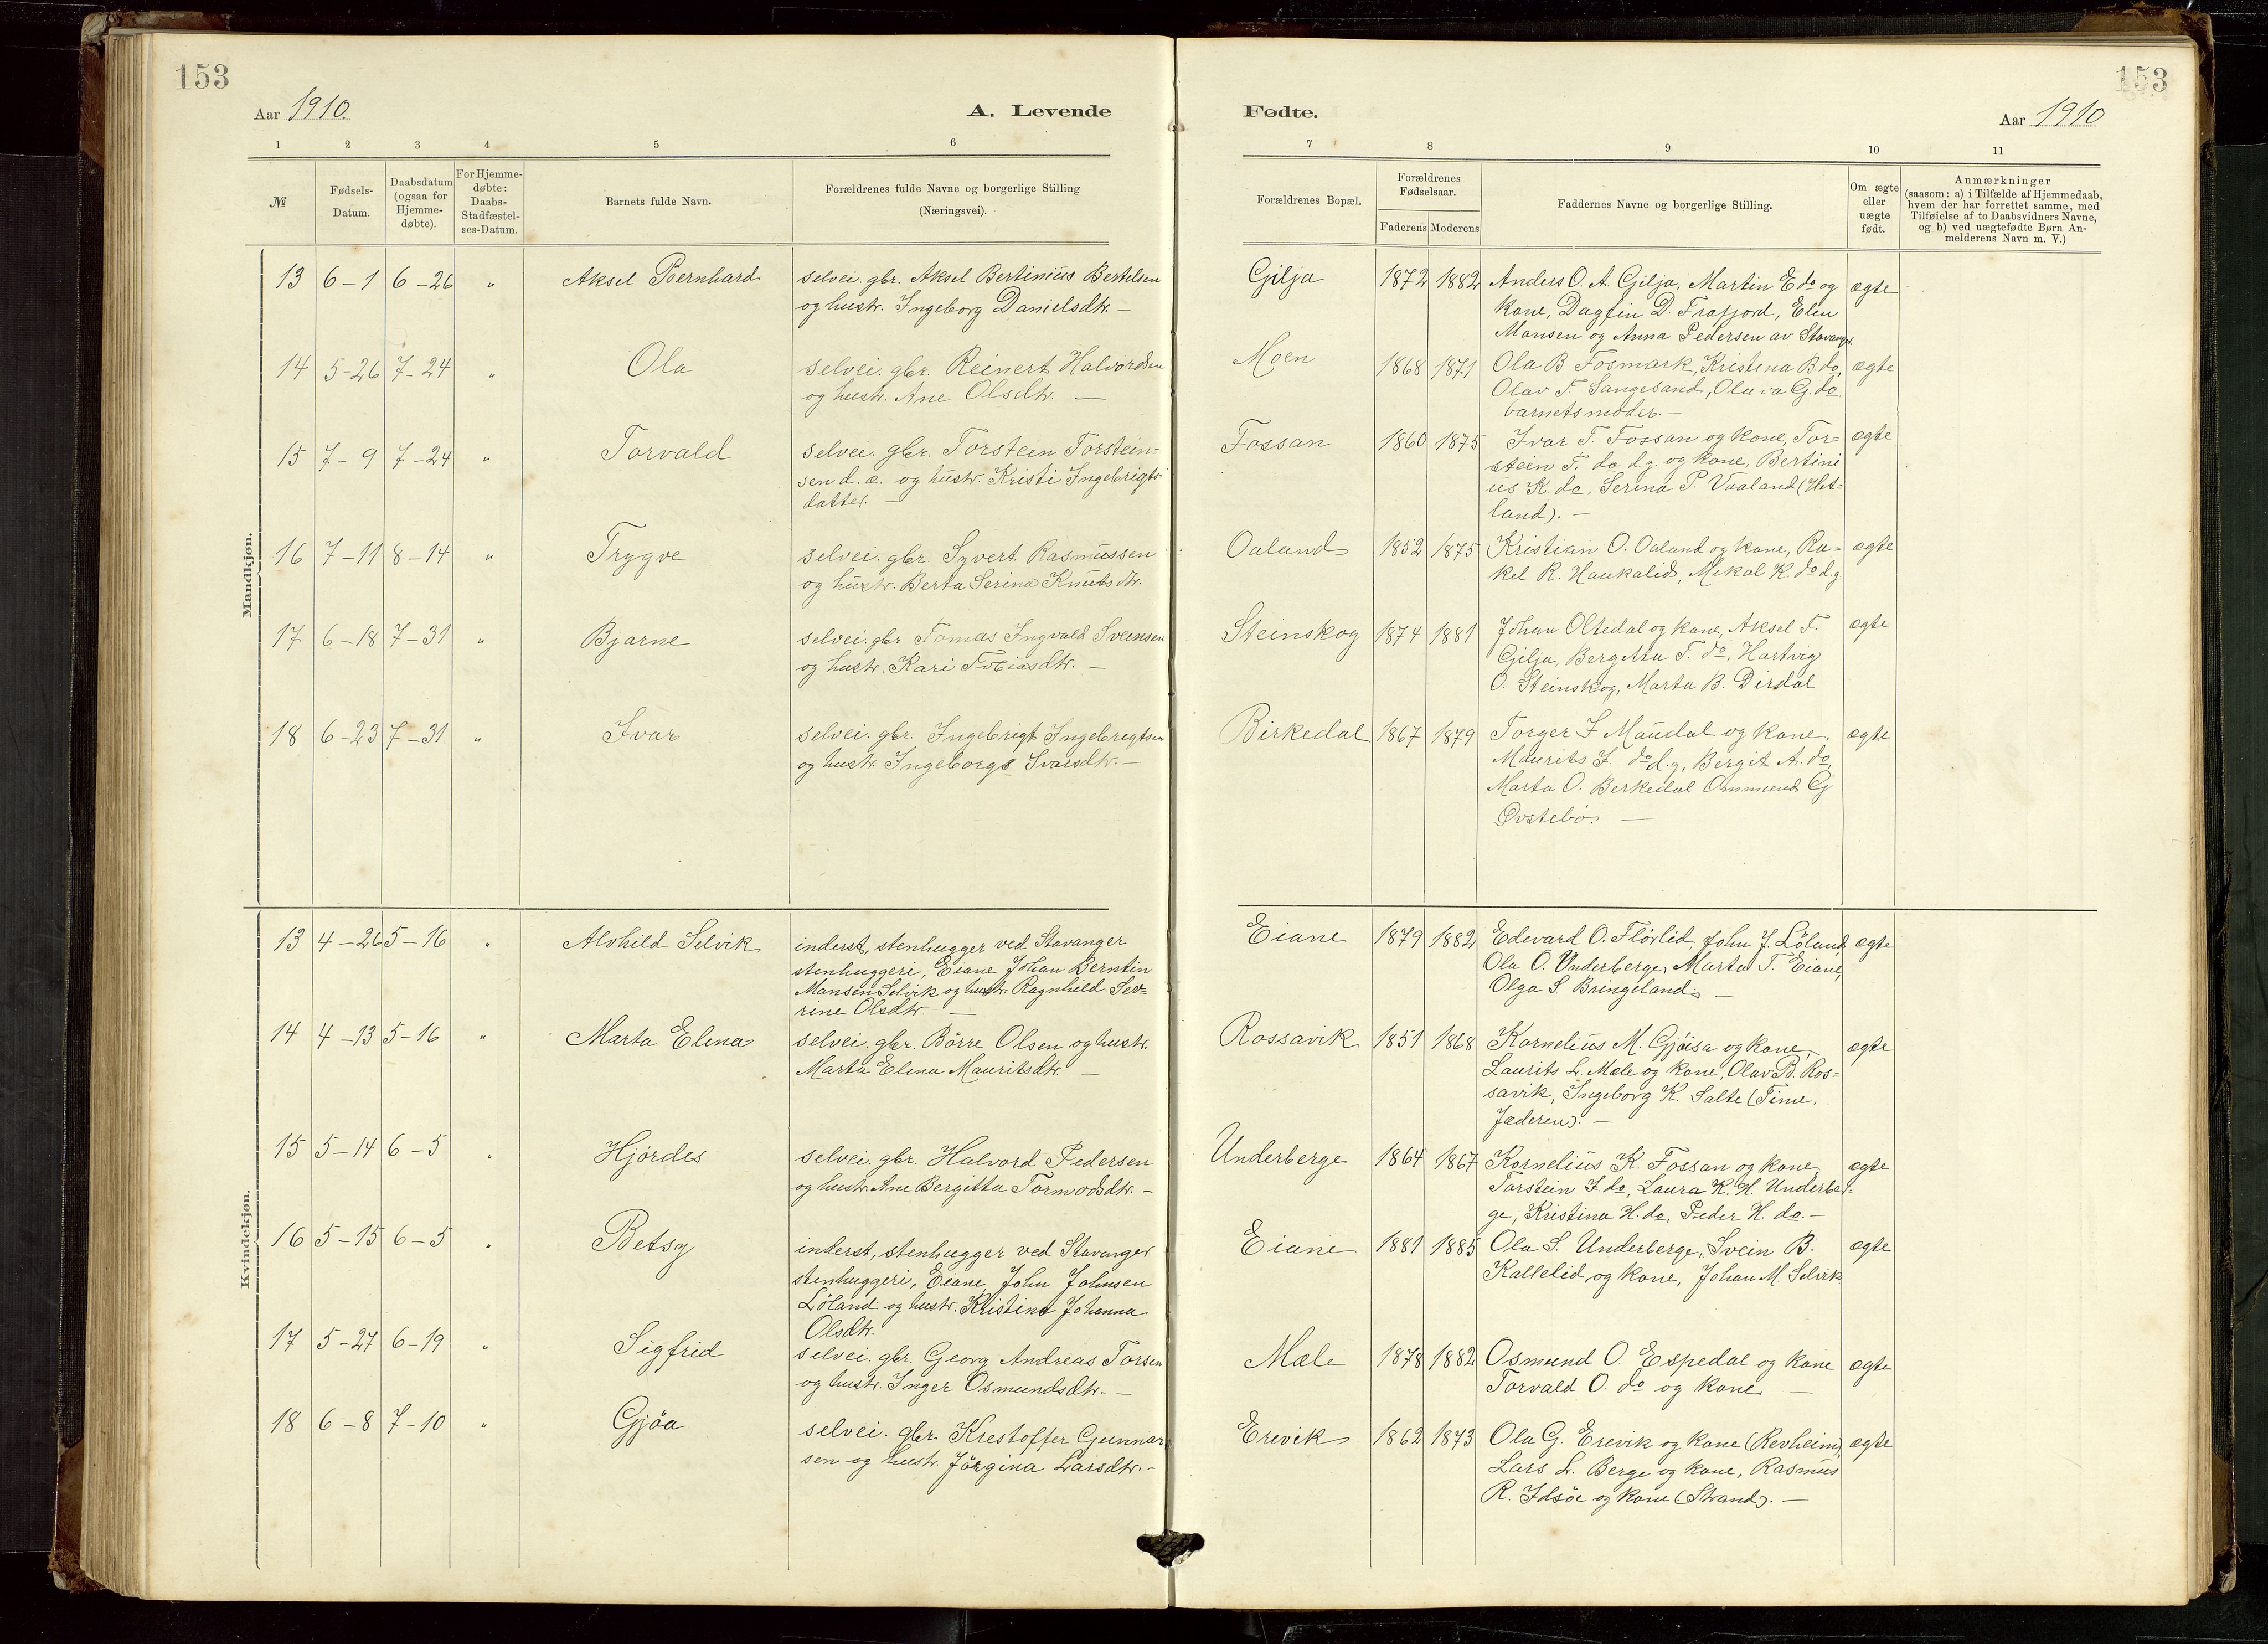 153
153
Aar 1910.
A. Levende
Fødte.
Aar 1910
1 2 3 4 5 6
7 8 9 10 11
№
Fødsels-
Datum.
Daabsdatum
(ogsaa for
Hjemme-
døbte).
For Hjemme-
døbte:
Daabs-
Stadfæstel-
ses-Datum.
Barnets fulde Navn.
Forældrenes fulde Navne og borgerlige Stilling
(Næringsvei).
Forældrenes Bopæl.
Forældrenes
Fødselsaar.
Faderens Moderens
Faddernes Navne og borgerlige Stilling.
Om ægte
eller
uægte
født.
Anmærkninger
(saasom: a) i Tilfælde af Hjemmedaab,
hvem der har forrettet samme, med
Tilføielse af to Daabsvidners Navne,
og b) ved uægtefødte Børn An-
melderens Navn m. V.)
Mandkjøn.
13 6-1 6-26 " Aksel Bernhard
selvei. gbr. Aksel Bertinius Bertelsen
og hustr. Ingeborg Danielsdtr. —
Gilja 1872 1882
Anders O. A. Gilja, Martin E do og
kone, Dagfin D. Frafjord, Elen
Mansen og Anna Pedersen av Stavanger
ægte
14 5-26 7-24 " Ola
selvei. gbr. Reinert Halvordsen
og hustr. Ane Olsdtr. —
Moen 1868 1871
Ola B Fosmark, Kristina B. do,
Olav T. Sangesand, Olava G. do.
barnets moder. —
ægte
15 7-9 7-24 " Torvald
selvei. gbr. Torstein Torstein=
sen d. æ. og hustr. Kristi Ingebrigts-
datter. —
Fossan 1860 1875
Ivar T. Fossan og kone, Tor=
stein T. do d.y. og kone, Bertini
us K. do, Serina P. Vaaland (Het=
land). —
ægte
16 7-11 8-14 " Trygve
selvei. gbr. Syvert Rasmussen
og hustr. Berta Serina Knutsdtr.
Oaland 1852 1875
Kristian O. Oaland og kone, Ra=
kel R. Haukalid, Mikal K. do d.y.
ægte
17 6-18 7-31 " Bjarne
selvei. gbr Tomas Ingvald Sveinsen
og hustr. Kari Tobiasdtr. —
Steinskog 1874 1881
Johan Oltedal og kone, Aksel T.
Gilja, Bergitta T. do, Hartvig
O. Steinskog, Marta B. Dirdal
ægte
18 6-23 7-31 " Ivar
selvei. gbr. Ingebrigt Ingebrigtsen
og hustr. Ingeborg Ivarsdtr. —
Birkedal 1867 1879
Torger I Maudal og kone,
Maurits I. do d.y, Bergit A. do,
Marta O. Berkedal Ommund G
Østebø. —
ægte
Kvindekjøn.
13 4-26 5-16 " Alvhild Selvik
inderst, stenhugger ved Stavanger
stenhuggeri, Eiane Johan Berntin
Mansen Selvik og hustr. Ragnhild Sev=
rine Olsdtr. —
Eiane 1879 1882
Edvard O. Flørlid, John J. Löland,
Ola O. Underberge, Marta T. Eiane,
Olga S. Bringeland. —
ægte
14 4-13 5-16 " Marta Elena
selvei. gbr. Börre Olsen og hustr.
Marta Elena Mauritsdtr. —
Rossavik 1851 1868
Kornelius M. Gjøisa og kone,
Laurits L. Mæle og kone, Olav B. Ros=
savik, Ingeborg K. Salte (Time,
Jæderen). —
ægte
15 5-14 6-5 " Hjördes
selvei. gbr. Halvord Pedersen
og hustr. Ane Bergitta Tormodsdtr. —
Underberge 1864 1867
Kornelius K. Fossan og kone,
Torstein I. do, Laura K. H. Underber=
ge, Kristina H. do, Peder H. do. —
ægte
16 5-15 6-5 " Betsy
inderst, stenhugger ved Stavanger
stenhuggeri, Eiane John Johnsen
Löland og hustr. Kristina Johanna
Olsdtr.
Eiane 1881 1885
Ola S. Underberge, Svein B.
Kallelid og kone, Johan M. Selvik
ægte
17 5-27 6-19 " Sigfrid
selvei. gbr. Georg Andreas Torsen
og hustr. Inger Osmundsdtr. —
Mæle 1878 1882
Osmund O. Espedal og kone
Torvald O. do og kone. —
ægte
18 6-8 7-10 " Gjöa
selvei. gbr. Krestoffer Gunnar
sen og hustr. Jörgina Larsdtr. —
Erevik 1862 1873
Ola G. Erevik og kone (Revheim),
Lars L. Berge og kone, Rasmus
R. Idsöe og kone (Strand). —
ægte